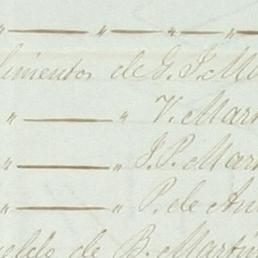 " — " — " — "
limentos de G. J. M
" — " V. Mar
" — " J. P. Mar
" — " P. de An
ueldo de B. Martin